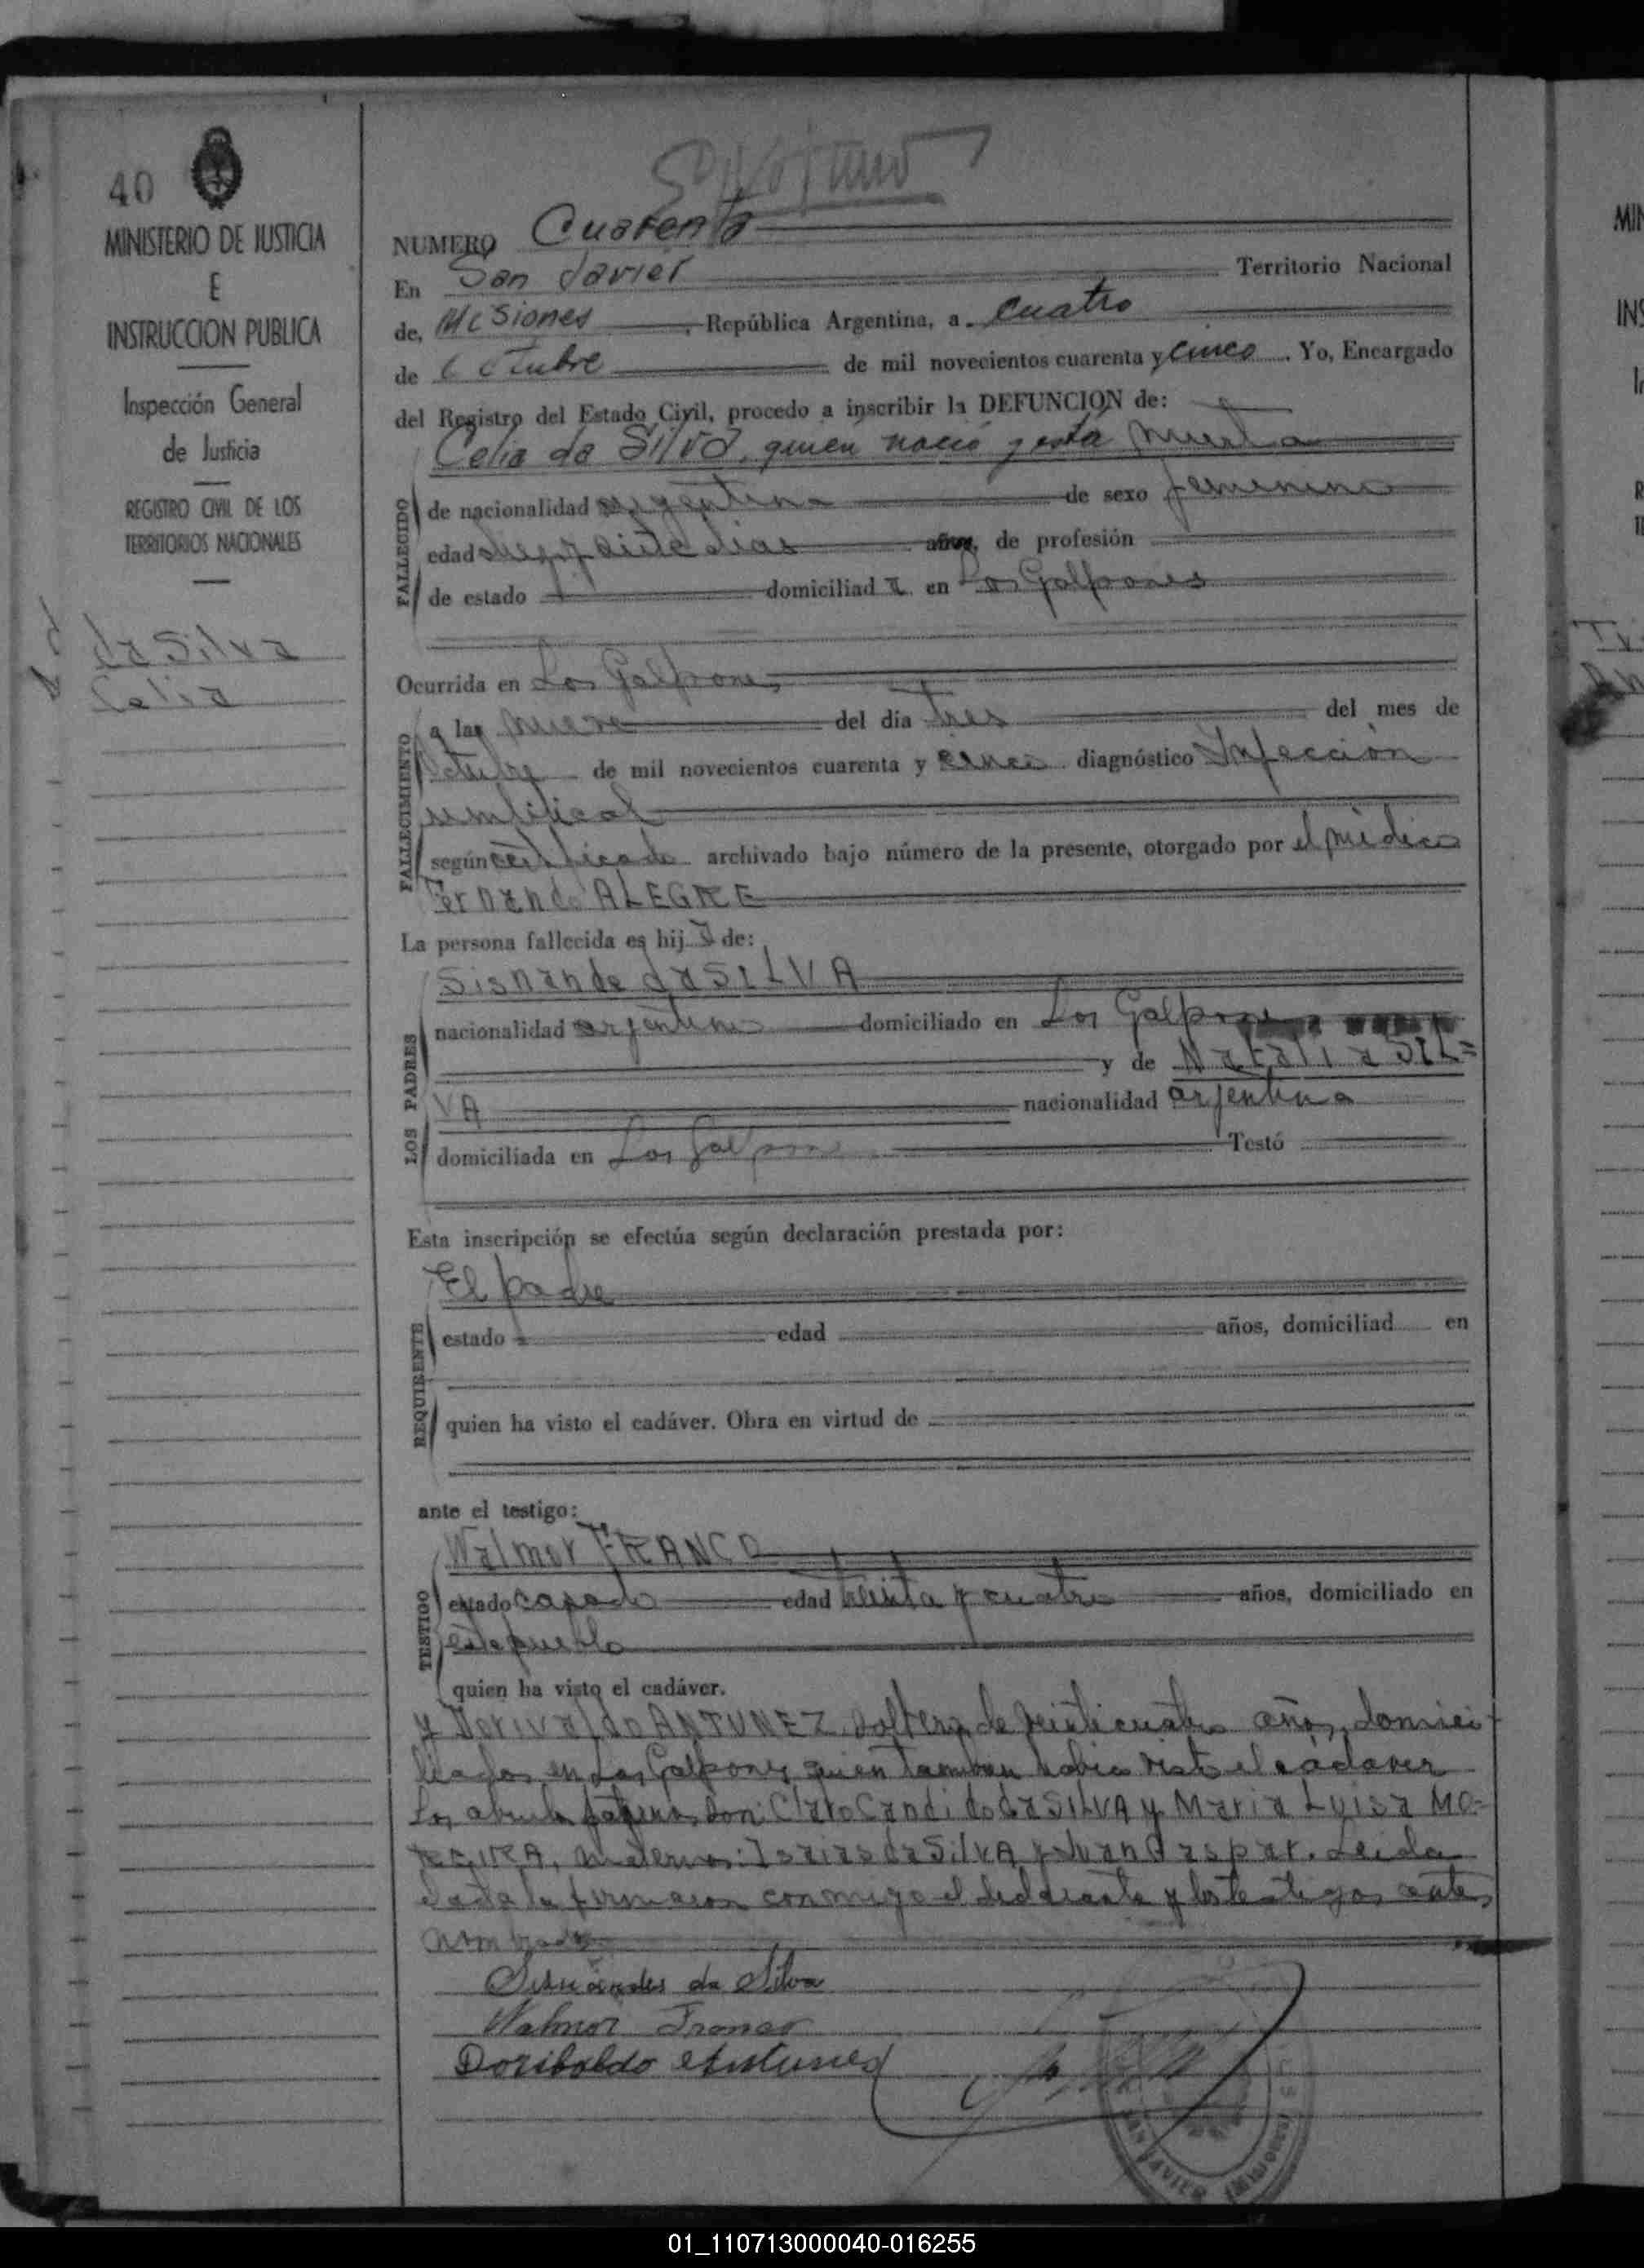 40
MINISTERIO DE JUSTICIA
E
INSTRUCCION PUBLICA
Inspección General
de Justicia
REGISTRO CIVIL DE LOS
TERRITORIOS NACIONALES
da Silva
Celia
NUMERO Cuarenta
En San Javier Territorio Nacional
de, Misiones, República Argentina, a cuatro
de Octubre de mil novecientos cuarenta y cinco. Yo, Encargado
del Registro del Estado Civil, procedo a inscribir la DEFUNCION de:
Celia da Silva, quien nació y está muerta
FALLECIDO
de nacionalidad argentina de sexo femenino
edad diez y siete dias años, de profesión
de estado domiciliad a en Los Galpones
Ocurrida en Los Galpones
FALLECIMIENTO
a las nueve del día tres del mes de
Octubre de mil novecientos cuarenta y cinco diagnóstico Infección
umbilical
según certificado archivado bajo número de la presente, otorgado por el médico
Fernando ALEGRE
La persona fallecida es hij a de:
LOS PADRES
Sisnande da SILVA
nacionalidad argentino domiciliado en Los Galpones
y de Natalia SIL=
VA nacionalidad argentina
domiciliada en Los Galpones Testó
Esta inscripción se efectúa según declaración prestada por:
El padre
REQUIRENTE
estado edad años, domiciliad en
quien ha visto el cadáver. Obra en virtud de
ante el testigo:
Walmor FRANCO
TESTIGO
estado casado edad treinta y cuatro años, domiciliado en
este pueblo
quien ha visto el cadáver.
y Dorivaldo ANTUNEZ, soltero, de veinticuatro años, domici-
liados en Los Galpones quien tambien habia visto el cádaver
Los abuelos paternos Don: Claro Candido da SILVA y Maria Luisa MO-
REIRA, maternos: Isaias da SilvA y Juana Gaspar. Leida
el acta la firmaron conmigo el declarante y los testigos antes
nombrados
Sisnandes da Silva
Walmor Franco
Doribaldo Antunes
SAN JAVIER (MISIONES)
01_110713000040-016255